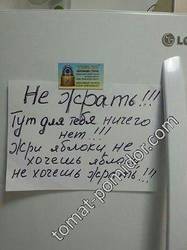 LG
Не жрать!!!
Тут для тебя ничего
нет!!!
Жри яблоки, не
хочешь яблок
не хочешь жрать!!!
tomat-pomidor.com